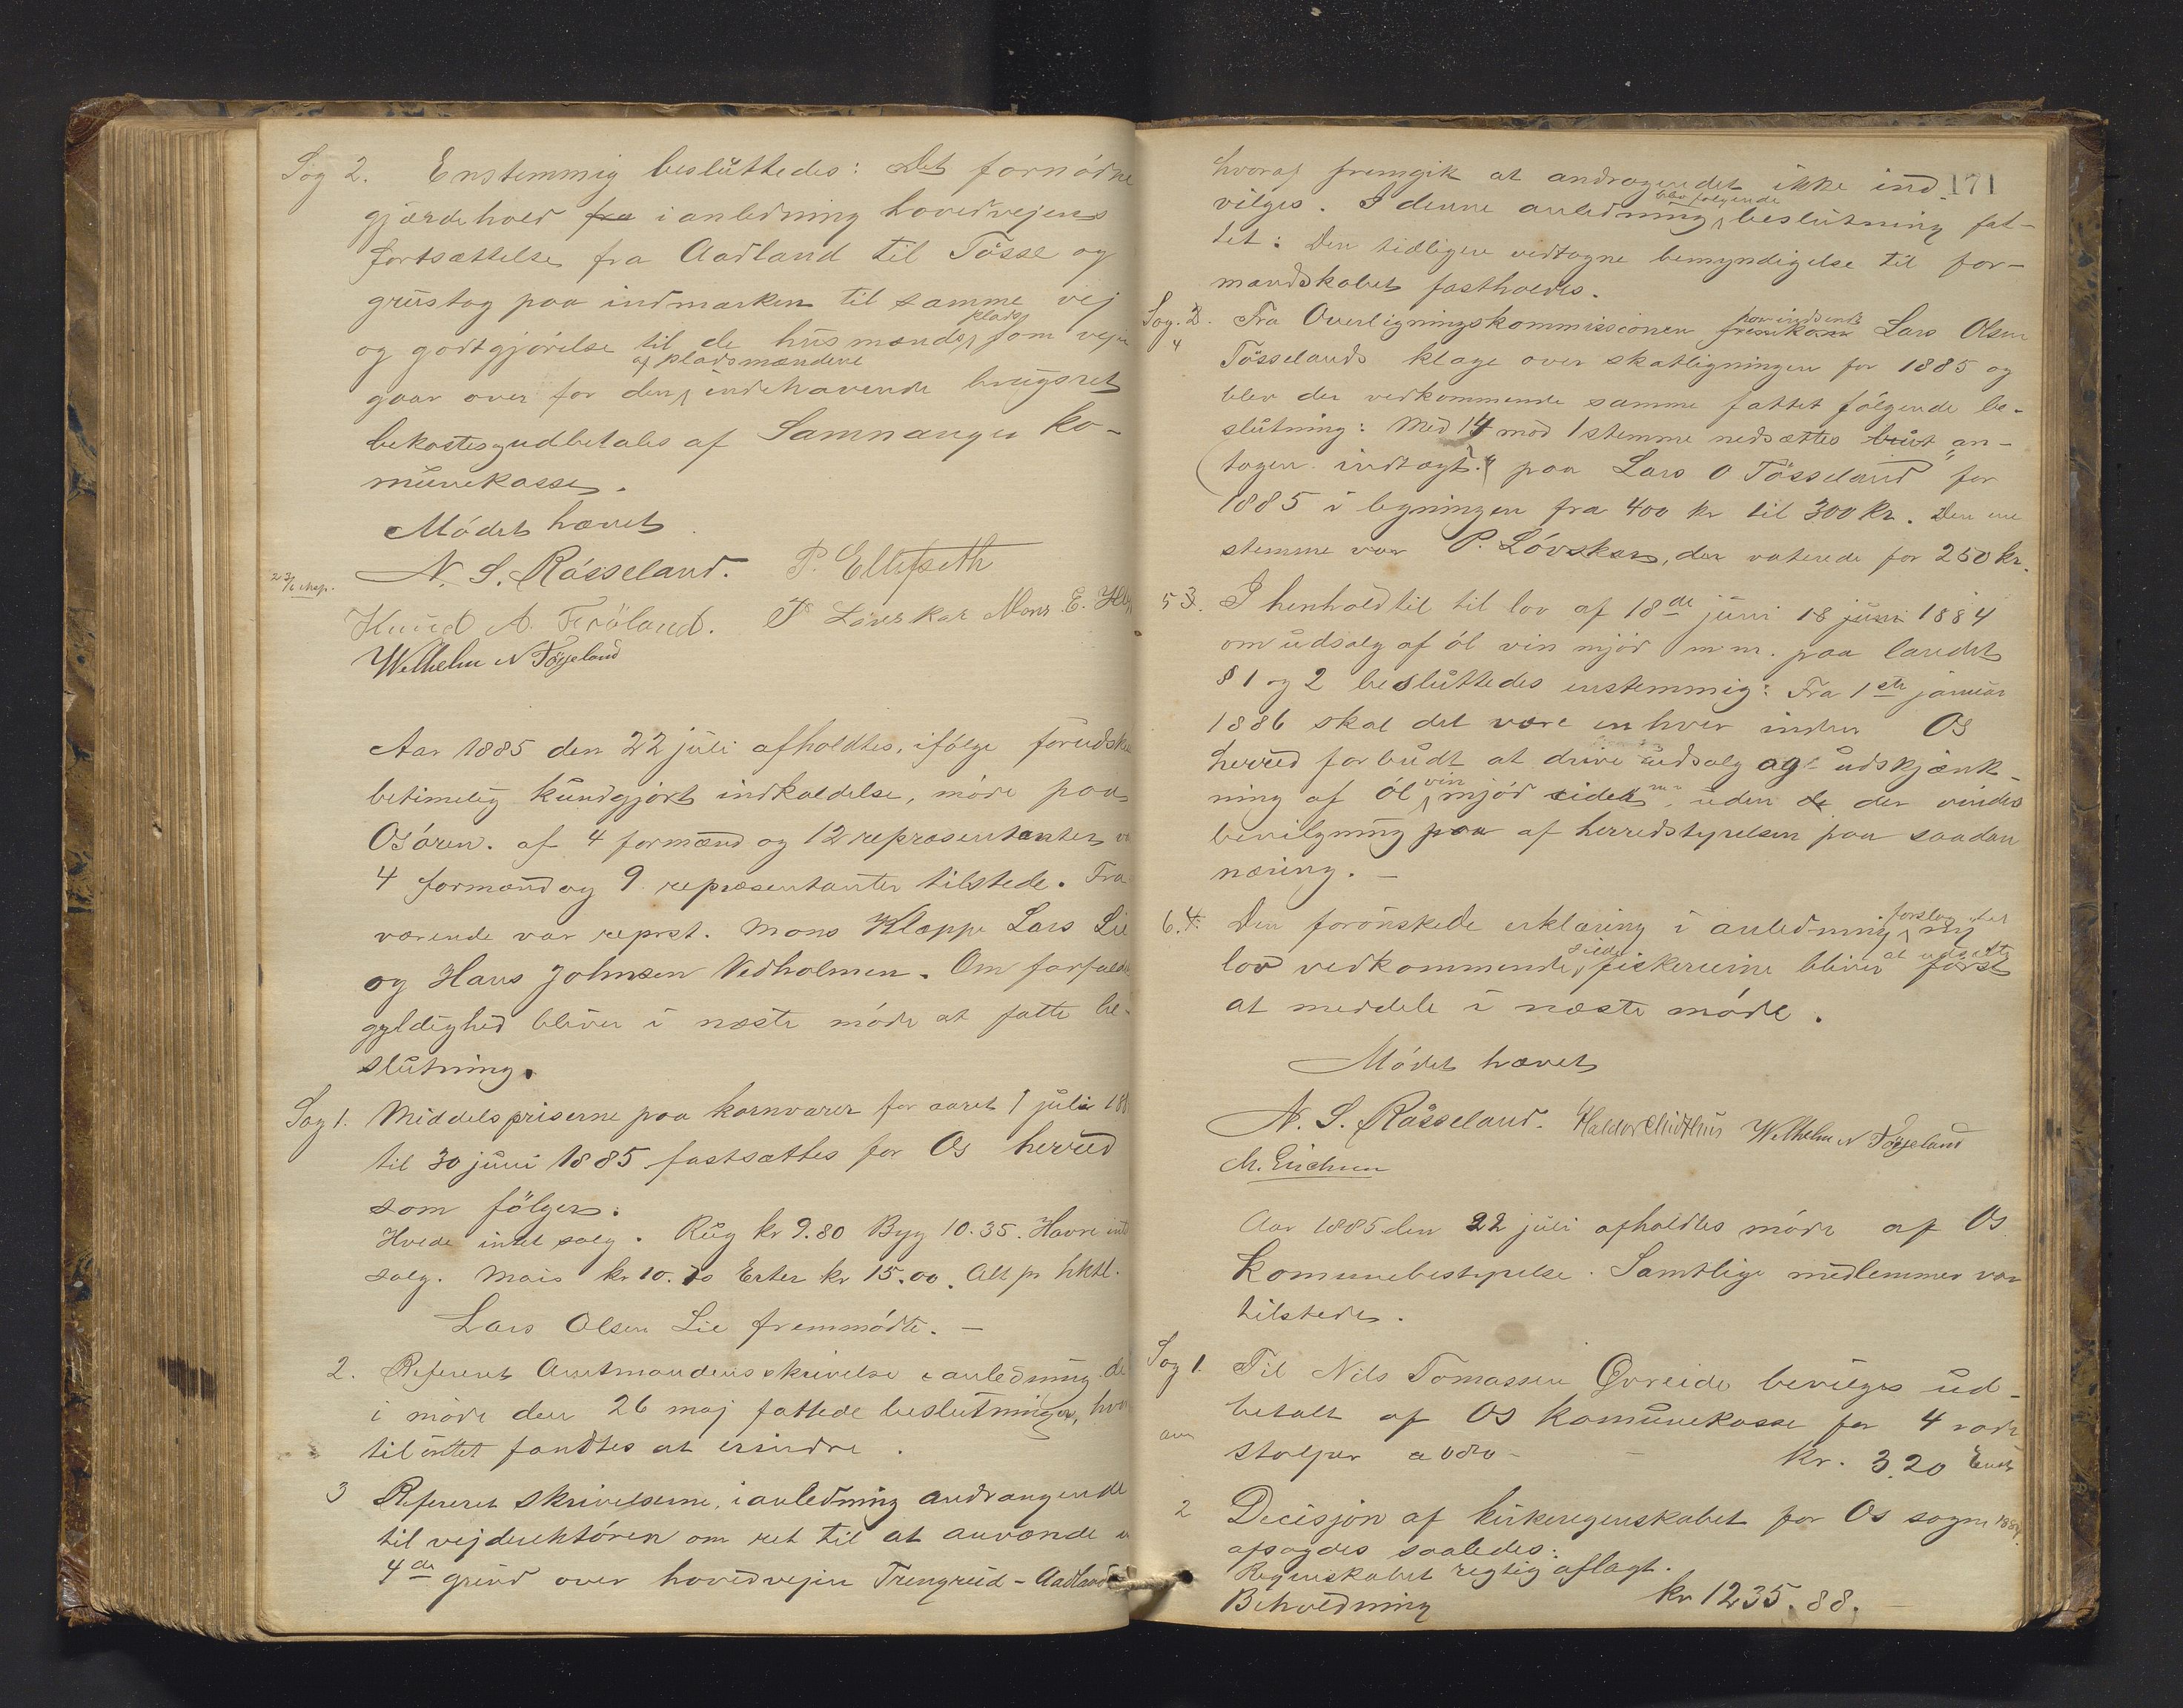 Sag 2. Enstemmig besluttedes: Det fornødne
gjærdehold fra i anledning hovedvejens
fortsættelse fra Aadland til Tösse og
grustag paa indmarken til samme vej
og godtgjörelse til de husmænds plads som vejen
gaar over for den af pladsmændene indehavende brugsret
bekostes og udbetales af Samnanger ko-
munekasse.
Mödet hævet
N. S. Røsseland. P. Ellefseth
23/6 Exp.
Knud A. Fröland. P Løvskar Mons E.
Wilhelm N Tøsseland
Aar 1885 den 22 juli afholdtes, ifölge forudsk
betimelig kundgjort indkaldelse, möde paa
Osören. af 4 formænd og 12 repræsentanter va
4 formænd og 9 repræsentanter tilstede. Fra
værende var reprst. Mons Kloppe Lars Lie
og Hans Johnsen Vedholmen. Om forfalds
gyldighed bliver i næste möde at fatte be-
slutning.
Sag 1. Middelspriserne paa kornvarer for aaret 1 juli 188
til 30 juni 1885 fastsættes for Os herred
som fölger:
Hvede intet salg. Rug kr 9.80 Byg 10.35. Havre int
salg. Mais kr 10.70 Erter kr 15.00. Alt pr hktl.
Lars Olsen Lie fremmödte. —
2. Referert Amtmandens skrivelse i anledning de
i möde den 26 maj fattede beslutninger, hvor
til intet fandtes at erindre.
3 Refereret skrivelserne, i anledning andragende
til vejdirektören om ret til at anvende e
4de grind over hovedvejen Trengreid - Aadland
171
hvoraf fremgik at andragendet ikke ind-
vilges. I denne anledning blev fölgende beslutning fat-
tet: Den tidligere vedtagne bemyndigelse til for-
mandskabet fastholdes.
Sag. 2. 4 Fra Overligningskommissionen fremkom var indsendt Lars Olsen
Tösselands klage over skatligningen for 1885 og
blev der vedkommende samme fattet fölgende be-
slutning: Med 14 mod 1 stemme nedsættes an-
tagen indtægt paa Lars O Tösseland for
1885 i ligningen fra 400 kr til 300 kr. Den ene
stemme var P. Løvskar, der voterede for 250 kr.
5 3. I henhold til til lov af 18de juni 18 juni 1884
om udsalg af öl vin mjöd m m. paa landet
§ 1 og 2 besluttedes enstemmig: Fra 1ste januar
1886 skal det være enhver inden Os
herred forbudt at drive udsalg og udskjænk-
ning af öl vin mjöd cider m.v. uden de der vindes
bevilgning paa af herredstyrelsen paa saadan
næring. —
6. 4. Den forönskede erklæring i anledning forslag til ny
lov vedkommende silde fiskerierne bliver at udsætte först
at meddele i næste möde.
Mödet hævet
N. S. Røsseland. Haldor Midthus Wilhelm N Tøsseland
M. Erichsen
Aar 1885 den 22 juli afholdtes möde af Os
komunebestyrelse. Samtlige medlemmer var
tilstede.
Sag 1. Til Nils Tomassen Øvreide bevilges ud-
betalt af Os komunekasse for 4 rode
stolper a 080 - — kr. 3.20
2 Decisjon af kirkeregnskabet for Os sogn 1884
afsagdes saaledes:
Regnskabet rigtig aflagt.
Beholdning kr 1235.88.